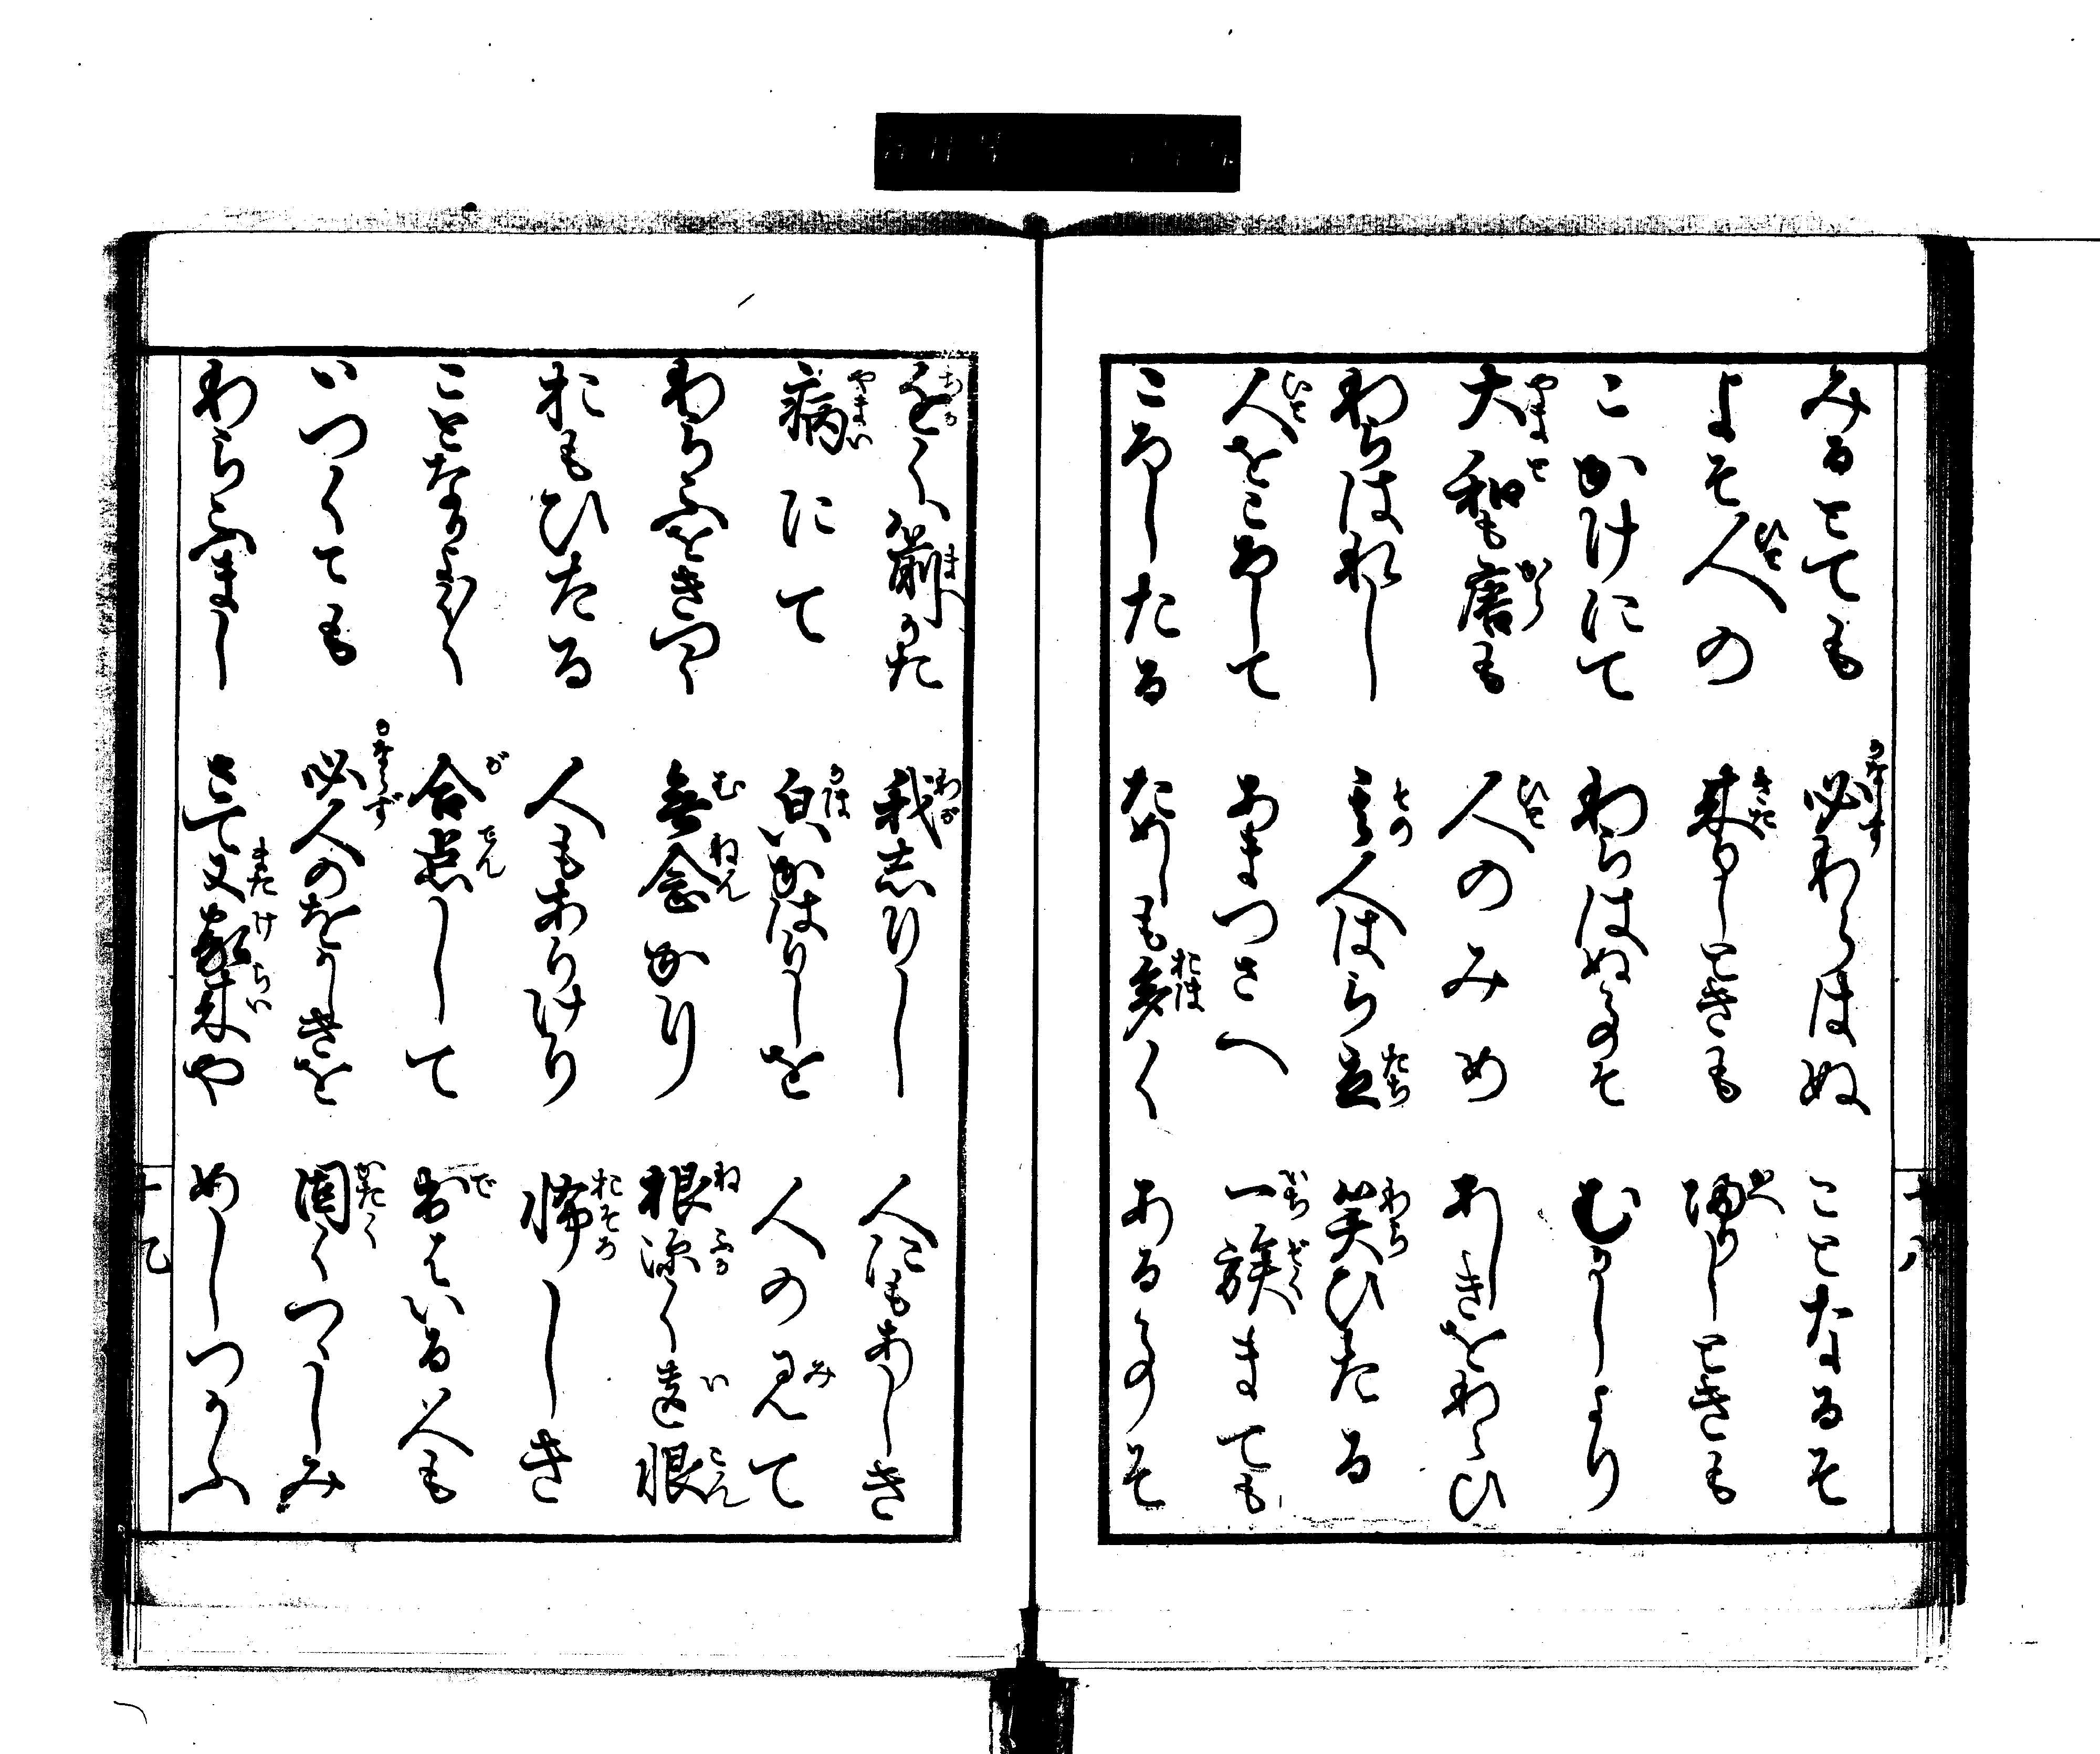 みるとても　必わらはぬ　ことなるそ
よそ人の　来りしときも　帰りしときも
こかけにて　わらはぬ事そ　むかしより
大和も唐も　人のみめ　あしきをわらひ
わらはれし　其人はら立　笑ひたる
人をころして　あまつさへ　一族まても
ころしたる　ためしも多く　ある事そ
近くハ前かた　我志りし　人にもあしき
病にて　皃かはりしを　人の見て
わらふをきつく　無念かり　根深く遺恨
おもひたる　人もありけり　怖しき
ことなりよく〳〵　合点して　出はいる人も
いつくても　必人のをかしきを　固くつゝしみ
わらふまし　さて又家来や　めしつかふ
十八